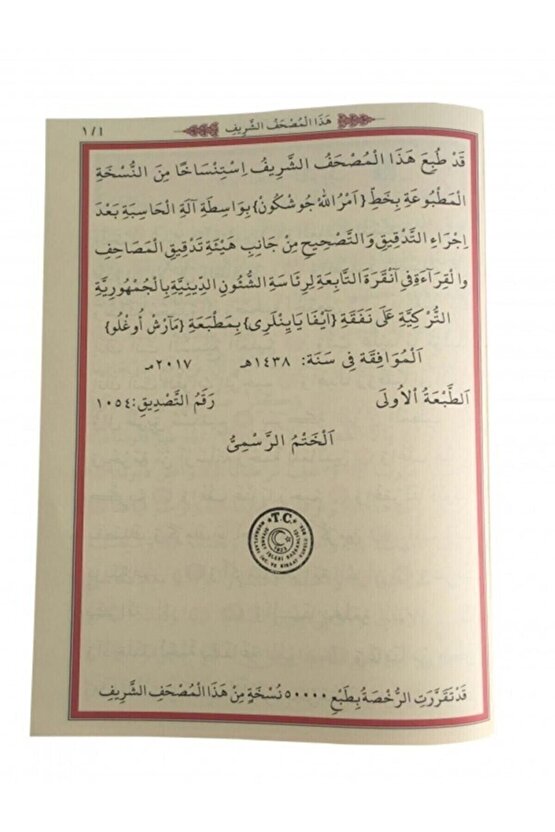 هَذَا الْمُصْحَفُ الشَّرِيفُ
١/٤
قَدْ طُبِعَ هَذَا الْمُصْحَفُ الشَّرِيفُ اِسْتِنْسَاخًا مِنَ النُّسْخَةِ
الْمَطْبُوعَةِ بِخَطِّ {اَمْرُاللهْ جُوشْكُونْ} بِوَاسِطَةِ آلَةِ الْحَاسِبَةِ بَعْدَ
اِجْرَاءِ التَّدْقِيقِ وَالتَّصْحِيحِ مِنْ جَانِبِ هَيْئَةِ تَدْقِيقِ الْمَصَاحِفِ
وَالْقِرَآءَةِ فِى آنْقَرَةَ التَّابِعَةِ لِرِئَاسَةِ الشُّئُونِ الدِّينِيَّةِ بِالْجُمْهُورِيَّةِ
التُّرْكِيَّةِ عَلَى نَفَقَةِ {آيْفَا يَايِينْلَرِى} بِمَطْبَعَةِ {مَآرْشْ اُوغْلُو}
اَلْمُوَافِقَةِ فِى سَنَةِ: ١٤٣٨هـ ٢٠١٧مـ
اَلطَّبْعَةُ الْاُولَى رَقَمُ التَّصْدِيقِ: ١٠٥٤
اَلْخَتْمُ الرَّسْمِىُّ
T.C.
قَدْ تَقَرَّرَتِ الرُّخْصَةُ بِطَبْعِ ٥٠٠٠٠ نُسْخَةٍ مِنْ هَذَا الْمُصْحَفِ الشَّرِيفِ